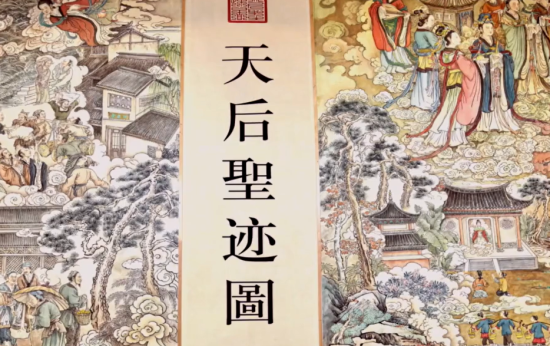 天后聖迹圖